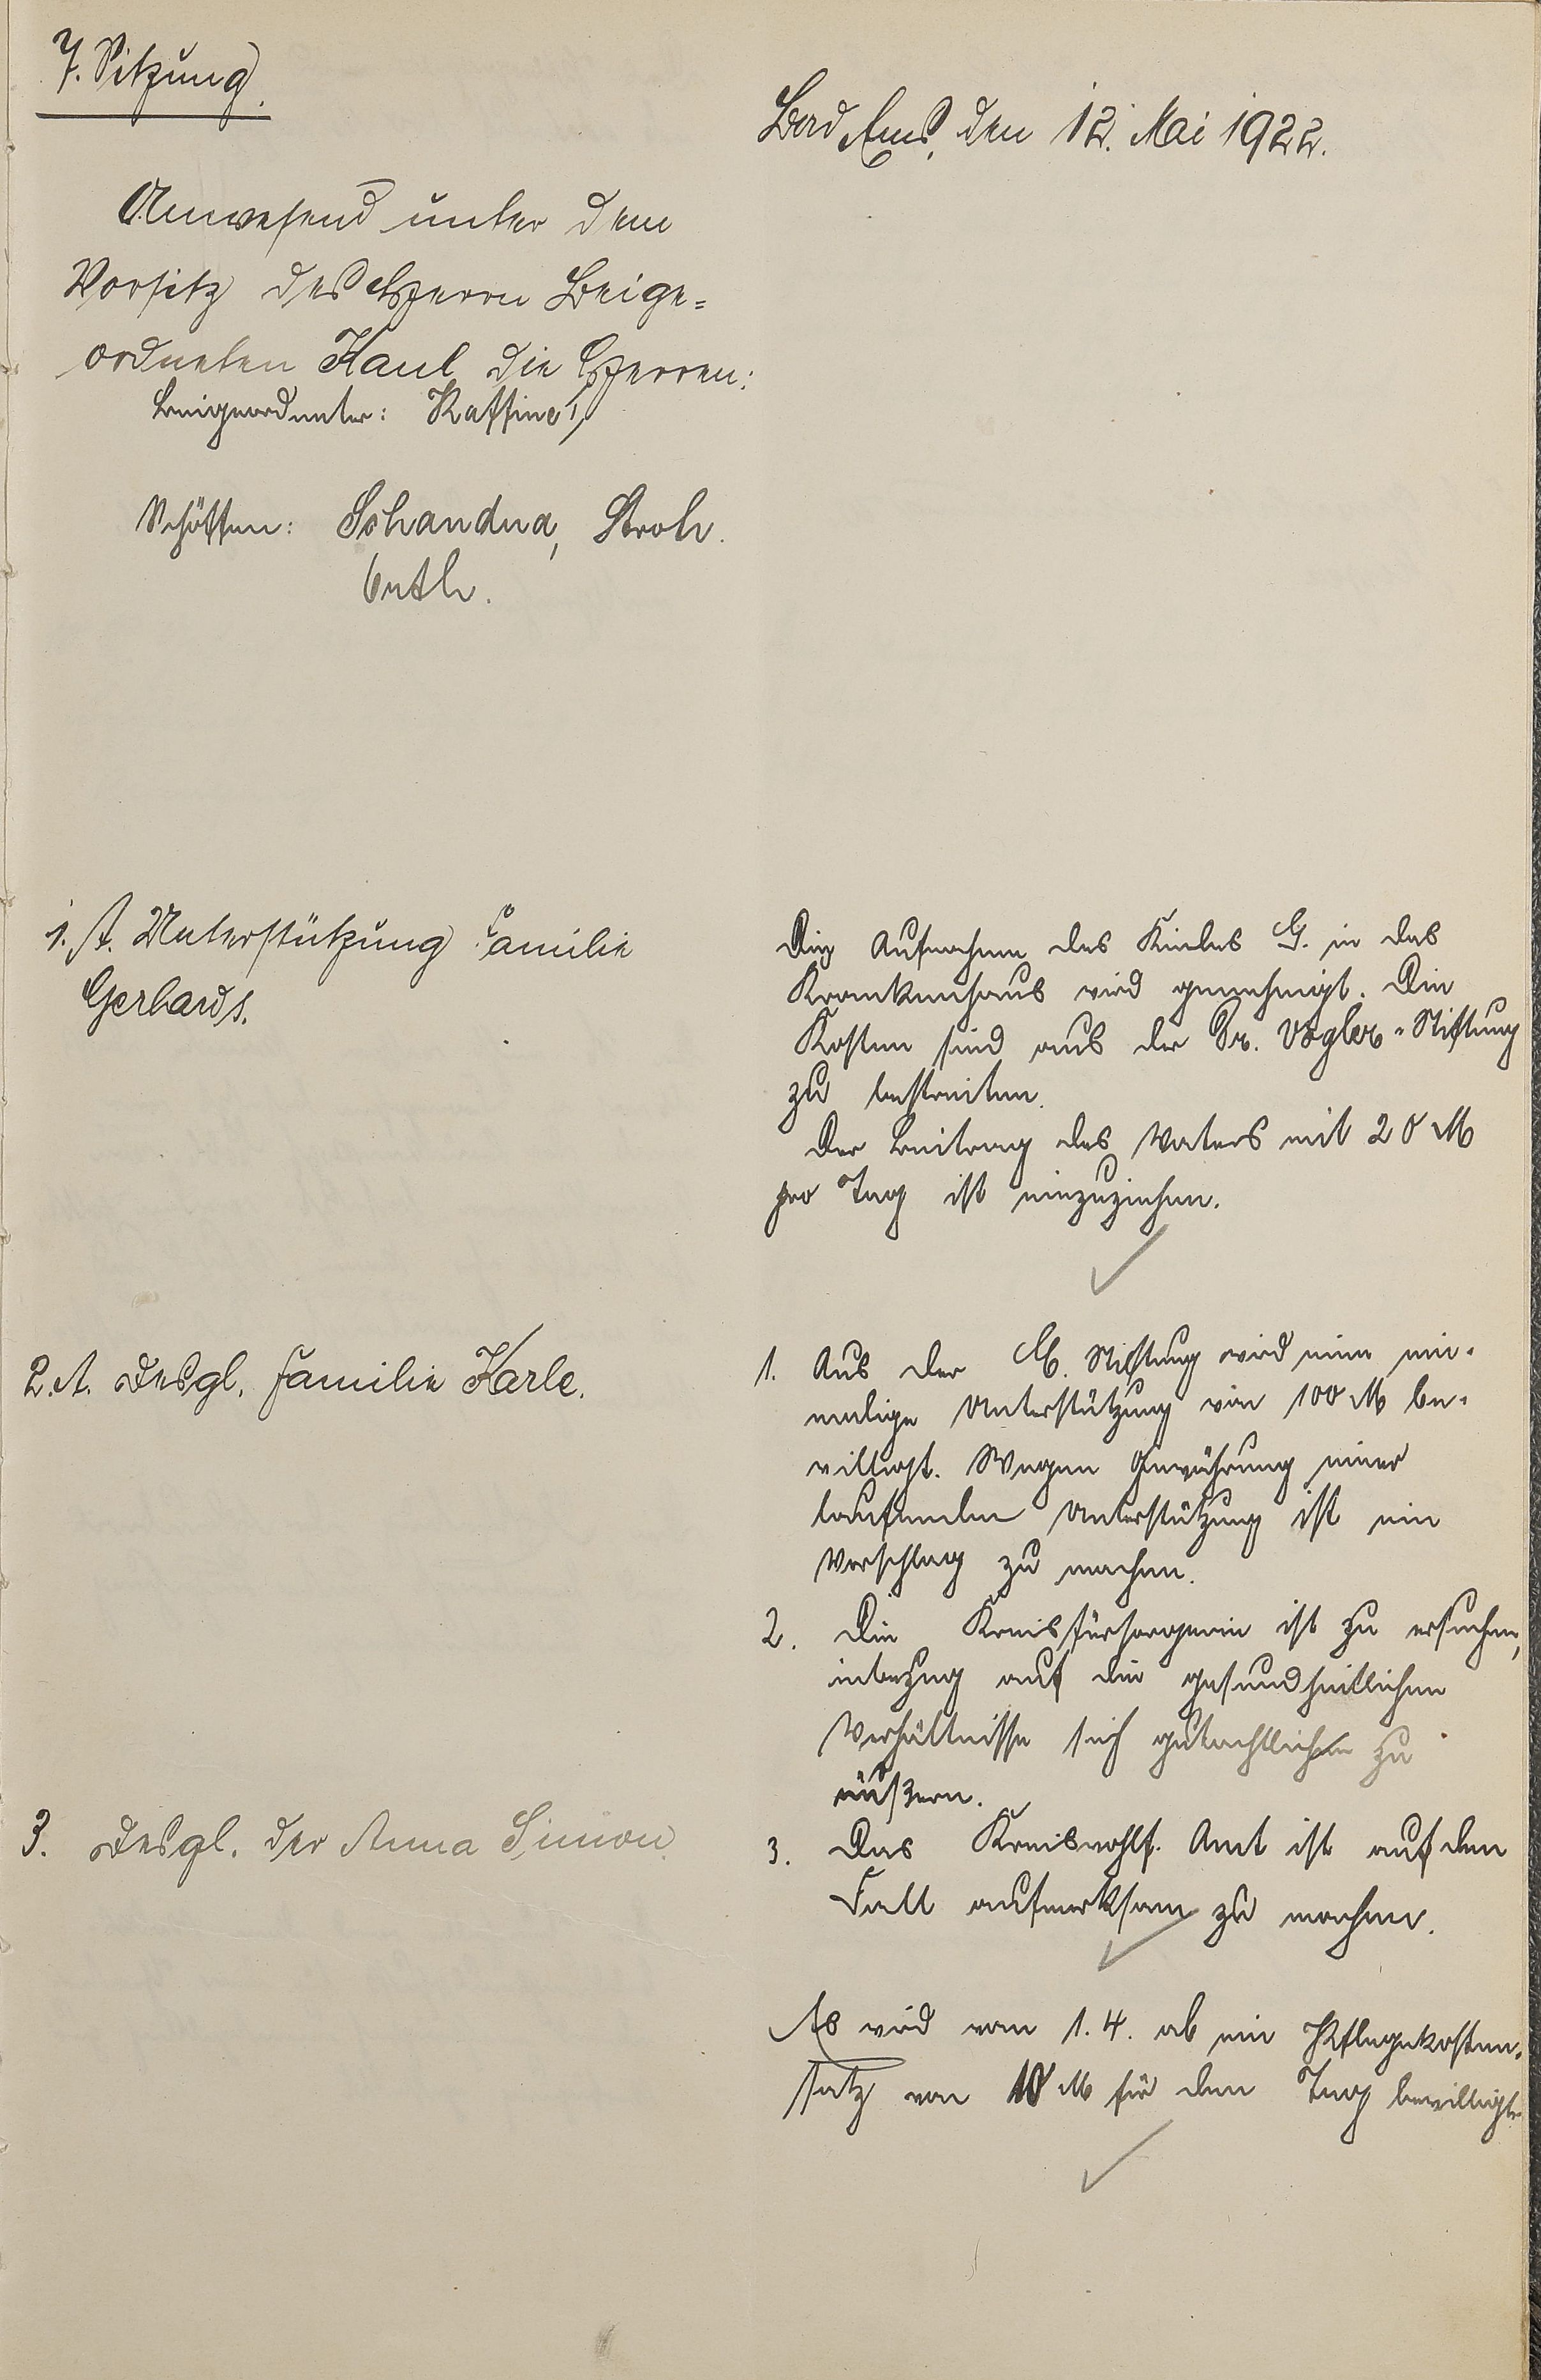 7. Sitzung.
Bad Ems, den 12. Mai 1922.
Anwesend unter dem
Vorsitz des Herrn Beige=
ordneten Kaul die Herren:
Beigeordneter: Raffiné,
Schöffen: Schandua, Stroh.
1. A. Unterstützung Familie
Gerhards.
Die Aufnahme des Kindes G. in das
Krankenhaus wird genehmigt. Die
Kosten sind aus der Dr. Vogler-Stiftung
zu bestreiten.
Der Beitrag des Vaters mit 20 M
pro Tag ist einzuziehen.
2. A. Desgl. Familie Karle.
1. Aus der Stiftung wird eine ein-
malige Unterstützung von 100 M be-
willigt. Wegen Gewährung einer
laufenden Unterstützung ist ein
Vorschlag zu machen.
2. Die Kreisfürsorgerin ist zu ersuchen,
inbezug auf die gesundheitlichen
Verhältnisse sich gutachtlich zu
äußern.
3. Das Kreiswohlf. Amt ist auf den
Fall aufmerksam zu machen.
3. Desgl. der Anna Simon
Es wird vom 1. 4. ab ein Pflegekosten-
satz von 10 M für den Tag bewilligt.